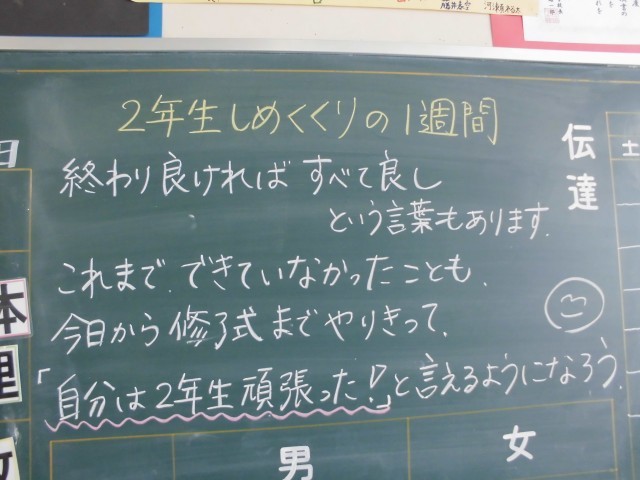 2年生しめくくりの1週間
終わり良ければ すべて良し
という言葉もあります.
これまで、できていなかったことも、
今日から修了式までやりきって、
「自分は2年生頑張った!」と言えるようになろう.
伝達
土
日
本
理
男
女